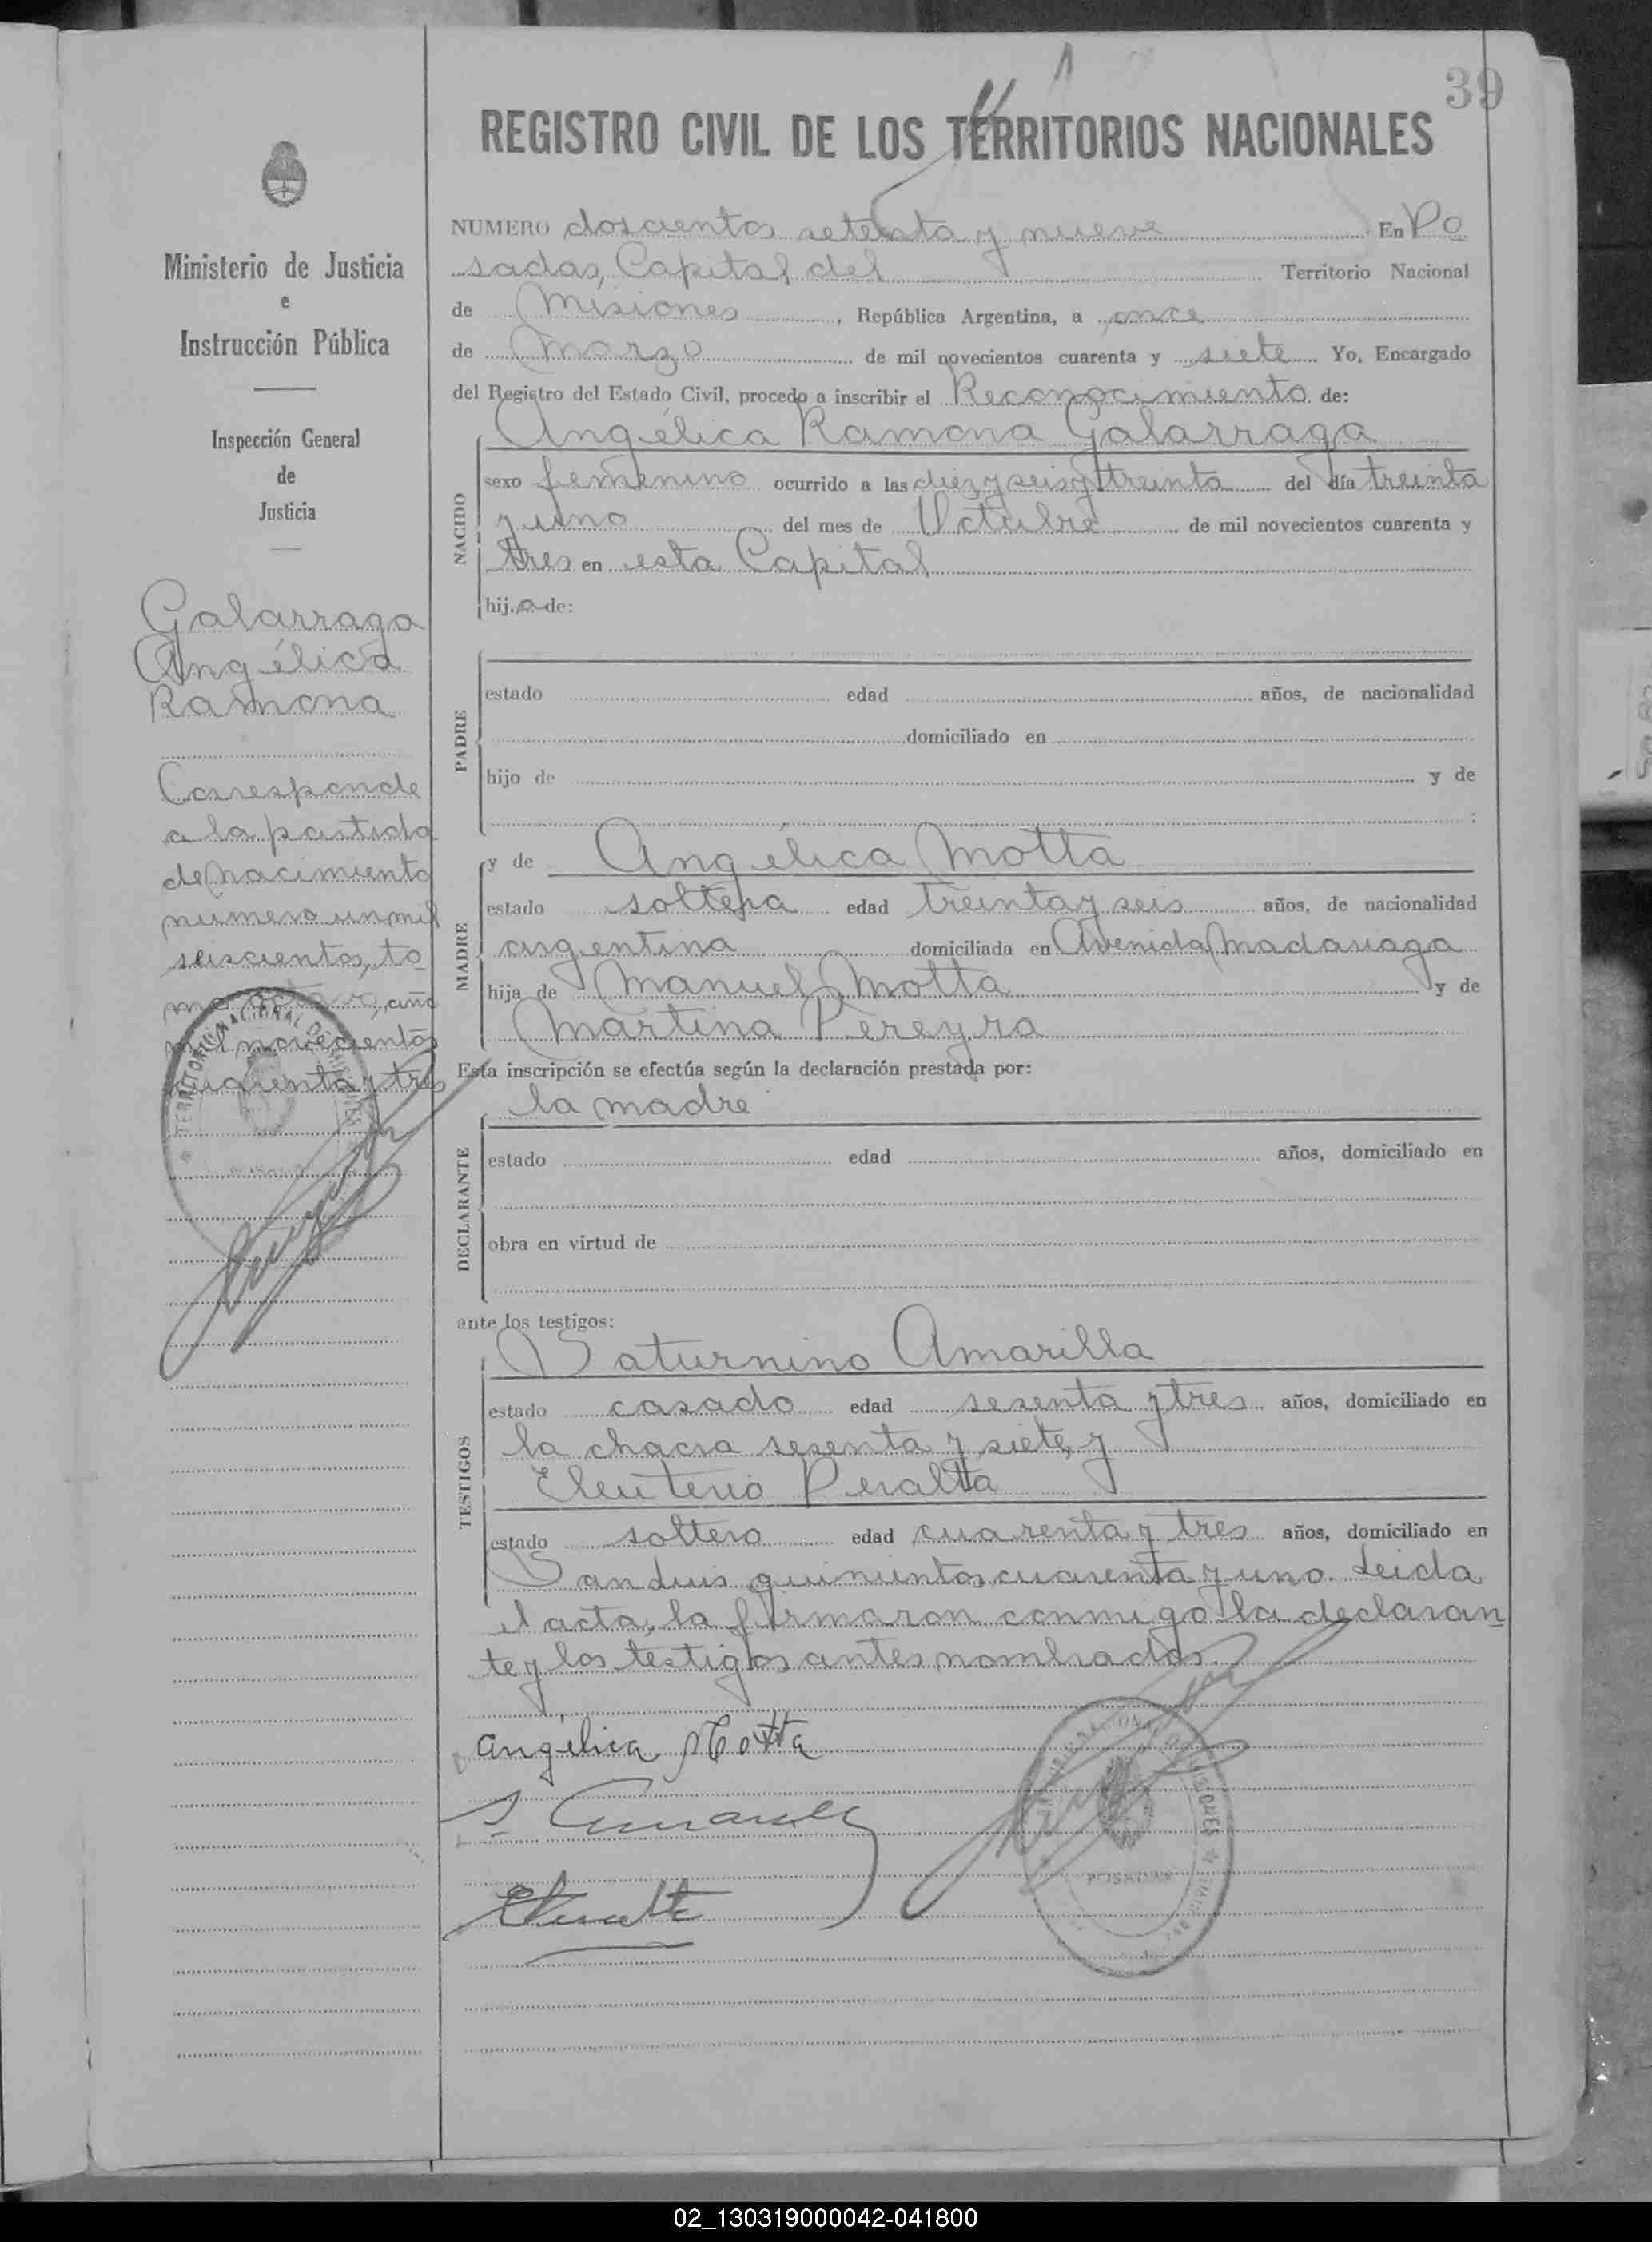 39
REGISTRO CIVIL DE LOS TERRITORIOS NACIONALES
Ministerio de Justicia
e
Instrucción Pública
Inspección General
de
Justicia
Galarraga
Angélica
Ramona
Corresponde
a la partida
de nacimiento
numero un mil
seiscientos, to
mo octavo, año
mil novecientos
cuarenta y tres
NUMERO doscientos setenta y nueve En Po
sadas, Capital del Territorio Nacional
de Misiones, República Argentina, a once
de Marzo de mil novecientos cuarenta y siete Yo, Encargado
del Registro del Estado Civil, procedo a inscribir el Reconocimiento de:
NACIDO
Angélica Ramona Galarraga
sexo femenino ocurrido a las diez y seis y treinta del día treinta
y uno del mes de Octubre de mil novecientos cuarenta y
tres en esta Capital
hija de:
PADRE
estado edad años, de nacionalidad
domiciliado en
hijo de y de
;
MADRE
y de Angélica Motta
estado soltera edad treinta y seis años, de nacionalidad
argentina domiciliada en Avenida Madariaga
hija de Manuel Motta y de
Martina Pereyra
Esta inscripción se efectúa según la declaración prestada por:
DECLARANTE
la madre
estado edad años, domiciliado en
obra en virtud de
ante los testigos:
TESTIGOS
Saturnino Amarilla
estado casado edad sesenta y tres años, domiciliado en
la chacra sesenta y siete, y
Eleuterio Peralta
estado soltero edad cuarenta y tres años, domiciliado en
San Luis quinientos cuarenta y uno. Leida
el acta, la firmaron conmigo la declaran
te y los testigos antes nombrados.
Angélica Motta
S. Amarilla
EPeralta
POSADAS
02_130319000042-041800